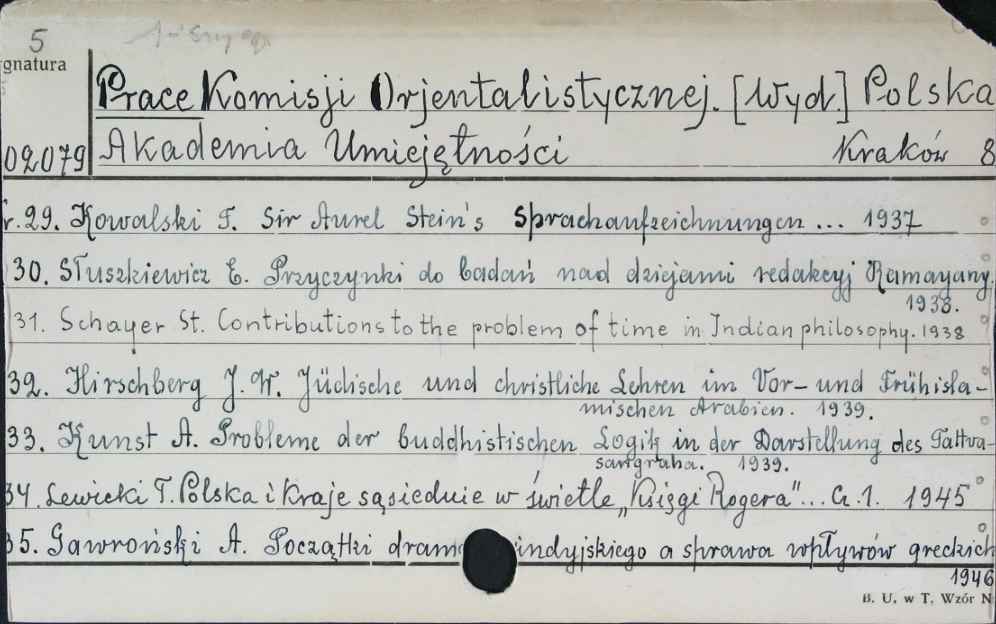 5
gnatura
Prace Komisji Orjentalistycznej. [Wyd.] Polska
02079 Akademia Umiejętności Kraków 8
r. 29. Kowalski T. Sir Aurel Stein's Sprachaufzeichnungen ... 1937
30. Słuszkiewicz E. Przyczynki do badań nad dziejami redakcyj Ramayany.
1938.
31. Schayer St. Contributions to the problem of time in Indian philosophy. 1938
32. Hirschberg J. W. Jüdische und christliche Lehren im Vor- und Frühisla-
mischen Arabien. 1939.
33. Kunst A. Probleme der buddhistischen Logik in der Darstellung des Tattva-
sangraha. 1939.
34. Lewicki T. Polska i kraje sąsiednie w świetle „Księgi Rogera"... Cz. 1. 1945
35. Gawroński A. Początki indyjskiego a sprawa wpływów greckich
1946
B. U. w T. Wzór N